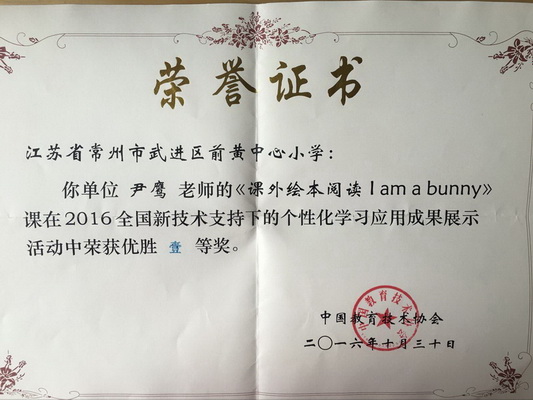 荣誉证书
江苏省常州市武进区前黄中心小学：
你单位 尹鹰 老师的《课外绘本阅读 I am a bunny》
课在2016全国新技术支持下的个性化学习应用成果展示
活动中荣获优胜 壹 等奖。
中国教育技术协会
二〇一六年十月三十日